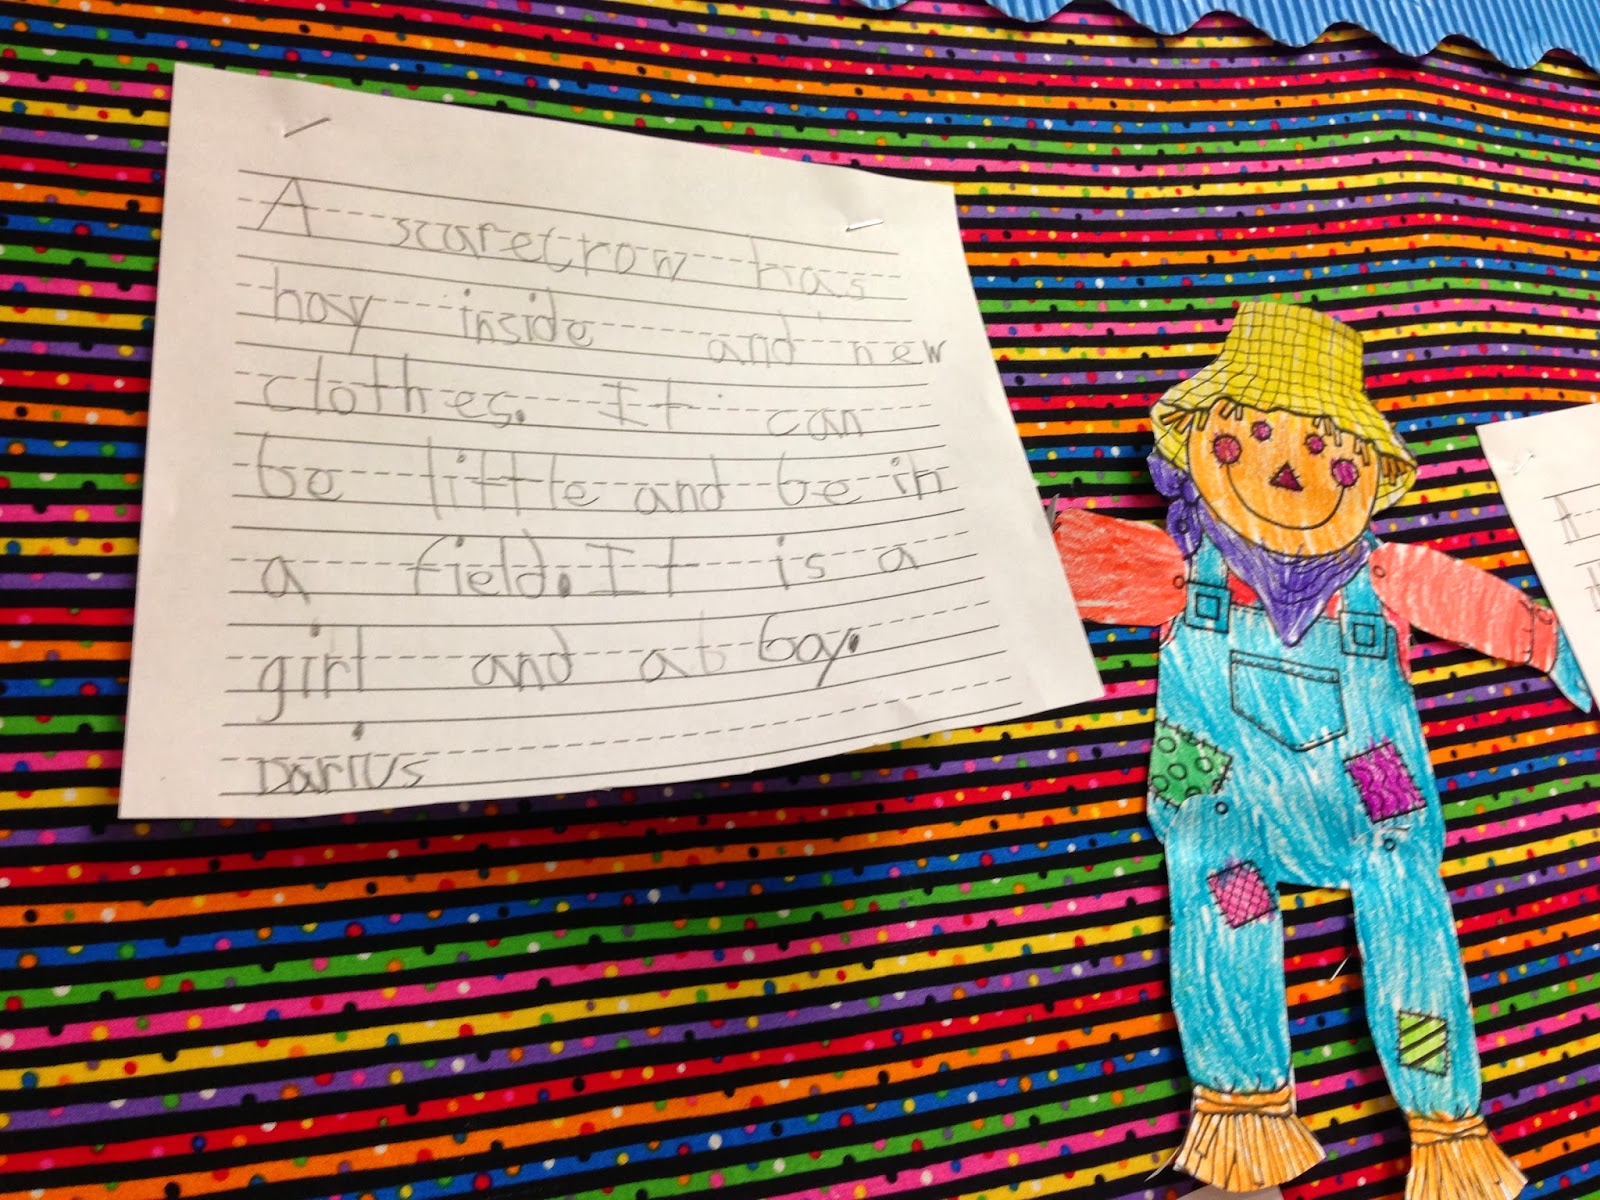 A scarecrow has
hay inside and new
clothes. It can
be little and be in
a field. It is a
girl and ab boy.
Darius
A